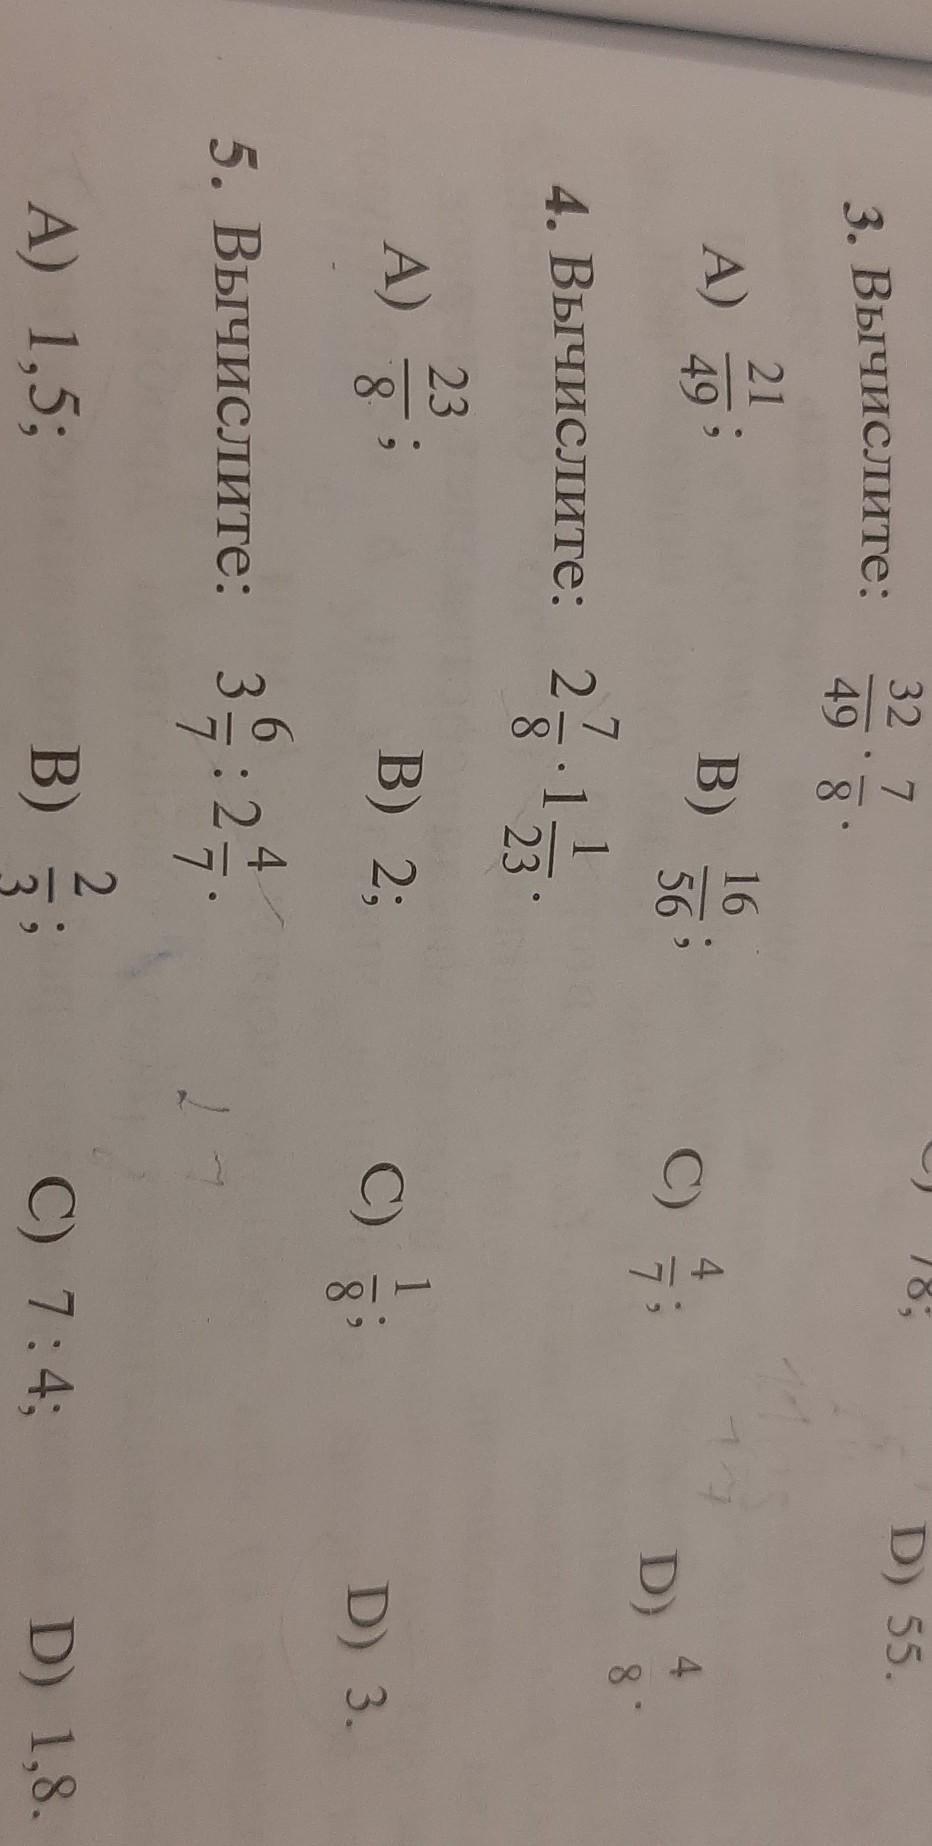 D) 55.
3. Вычислите: 32/49 · 7/8.
A) 21/49; B) 16/56; C) 4/7; D) 4/8.
4. Вычислите: 2 7/8 · 1 1/23.
A) 23/8; B) 2; C) 1/8; D) 3.
5. Вычислите: 3 6/7 : 2 4/7.
A) 1,5; B) 2/3; C) 7 : 4; D) 1,8.